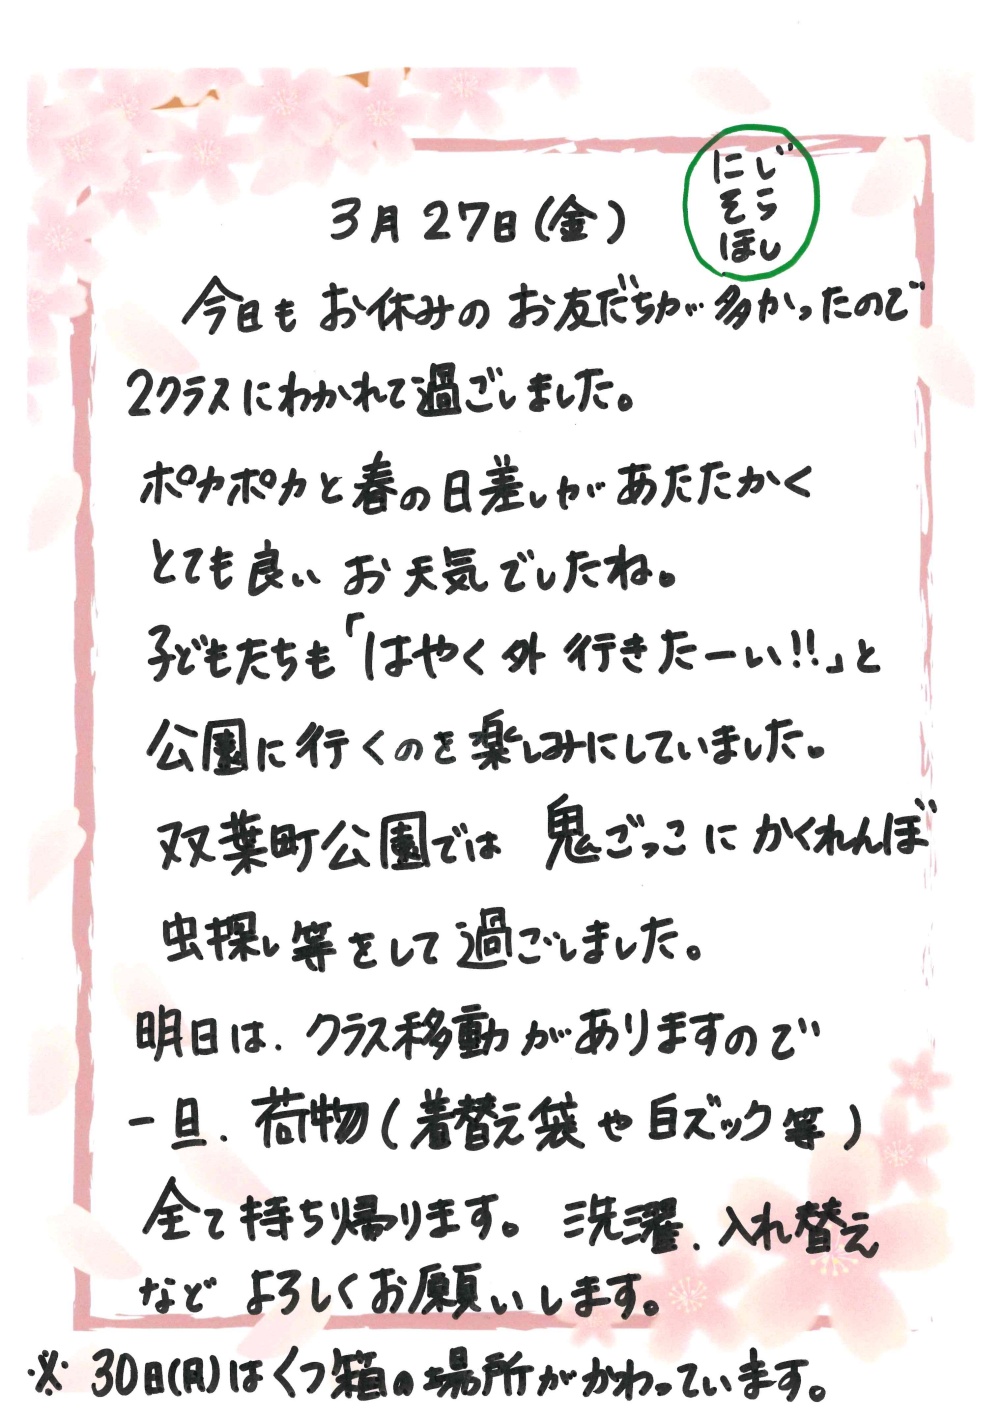 にじ
そら
ほし
3月27日(金)
今日もお休みのお友だちが多かったので
2クラスにわかれて過ごしました。
ポカポカと春の日差しがあたたかく
とても良いお天気でしたね。
子どもたちも「はやく外行きたーい!!」と
公園に行くのを楽しみにしていました。
双葉町公園では 鬼ごっこにかくれんぼ
虫探し等をして過ごしました。
明日は、クラス移動がありますので
一旦、荷物(着替え袋や白ズック等)
全て持ち帰ります。洗濯、入れ替え
などよろしくお願いします。
※30日(月)はくつ箱の場所がかわっています。